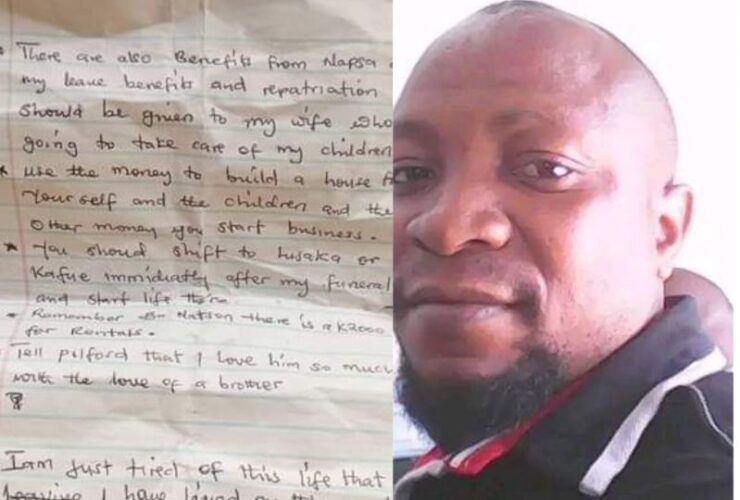 There are also Benefits from Napsa
my leave benefits and repatriation
should be given to my wife who
going to take care of my children
* use the money to build a house
Your self and the children and the
Other money you start business.
* You should shift to Lusaka or
Kafue immidiatly after my funeral
and start life there
* Remember Natson there is a K2000
for Rentals.
Tell pilford that I love him so much
with the love of a brother
I am just tired of this life that
I have lived